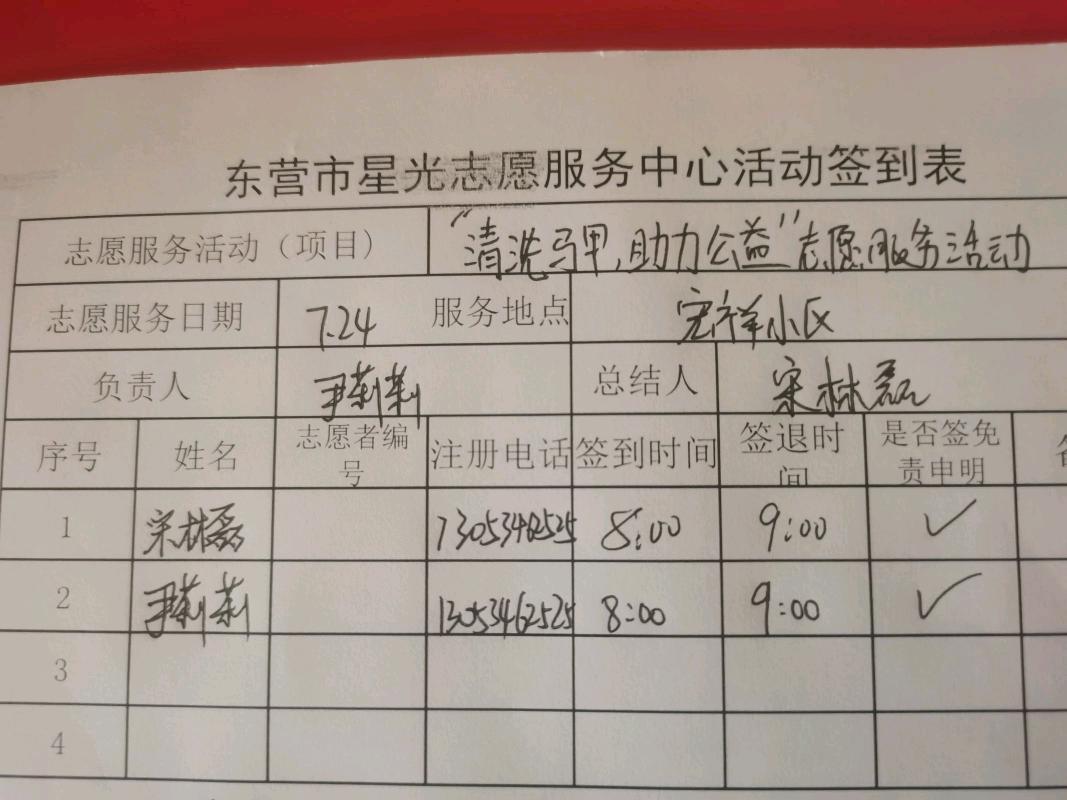 东营市星光志愿服务中心活动签到表
志愿服务活动（项目） “清洗马甲,助力公益”志愿服务活动
志愿服务日期 7.24 服务地点 宏祥小区
负责人 尹莉莉 总结人 宋林磊
序号 姓名 志愿者编号 注册电话 签到时间 签退时间 是否签免责申明
1 宋林磊 13053462525 8:00 9:00 ✓
2 尹莉莉 13053462525 8:00 9:00 ✓
3
4